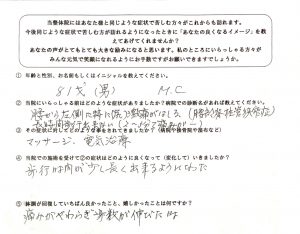 当整体院にはあなた様と同じような症状で苦しむ方々がこれからも訪れます。
今後同じような症状で苦しむ方が訪れるようになったときに「あなたの良くなるイメージ」を教
えてあげてくれませんか？
あなたの声がとてもとても大きな励みになると思います。私のところにいらっしゃる方々が
みんな元気で笑顔になれるようにお手数ですがお願いできますでしょうか。
① 年齢と性別、お名前もしくはイニシャルを教えてください。
81才 (男) M.C
② 当院にいらっしゃる前はどのような症状がありましたか？病院での診断名があれば教えてください。
腰から左側の特に 激痛がはしる（腰部脊柱管狭窄症）
長時間歩行出来ない（2～3分で痛みが）
③ その症状に対してどのような事をされてきましたか？（病院や接骨院や薬など）
マッサージ、電気治療
④ 当院での施術を受けて②の症状はどのように良くなって（変化して）いきましたか？
歩行時間が少し長く出来るようになった
⑤ 針灸が回復していちばん良かったこと、嬉しかったことは何ですか？
痛みがやわらぎ歩数が伸びた